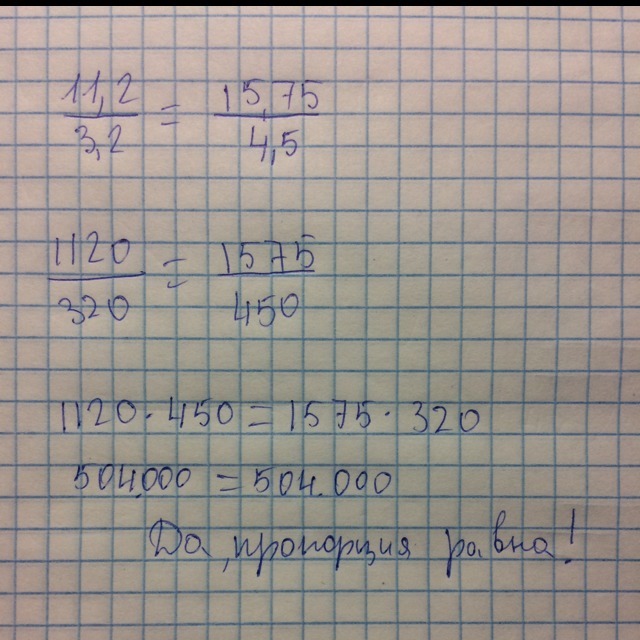 11,2/3,2 = 15,75/4,5
1120/320 = 1575/450
1120 · 450 = 1575 · 320
504.000 = 504.000
Да, пропорция равна!